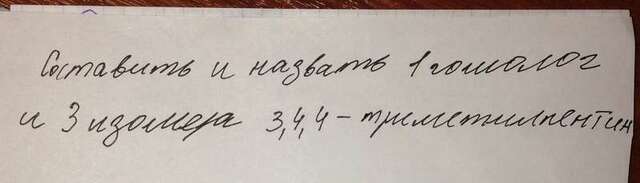 Составить и назвать 1 гомолог
и 3 изомера 3,4,4 – триметилпентин